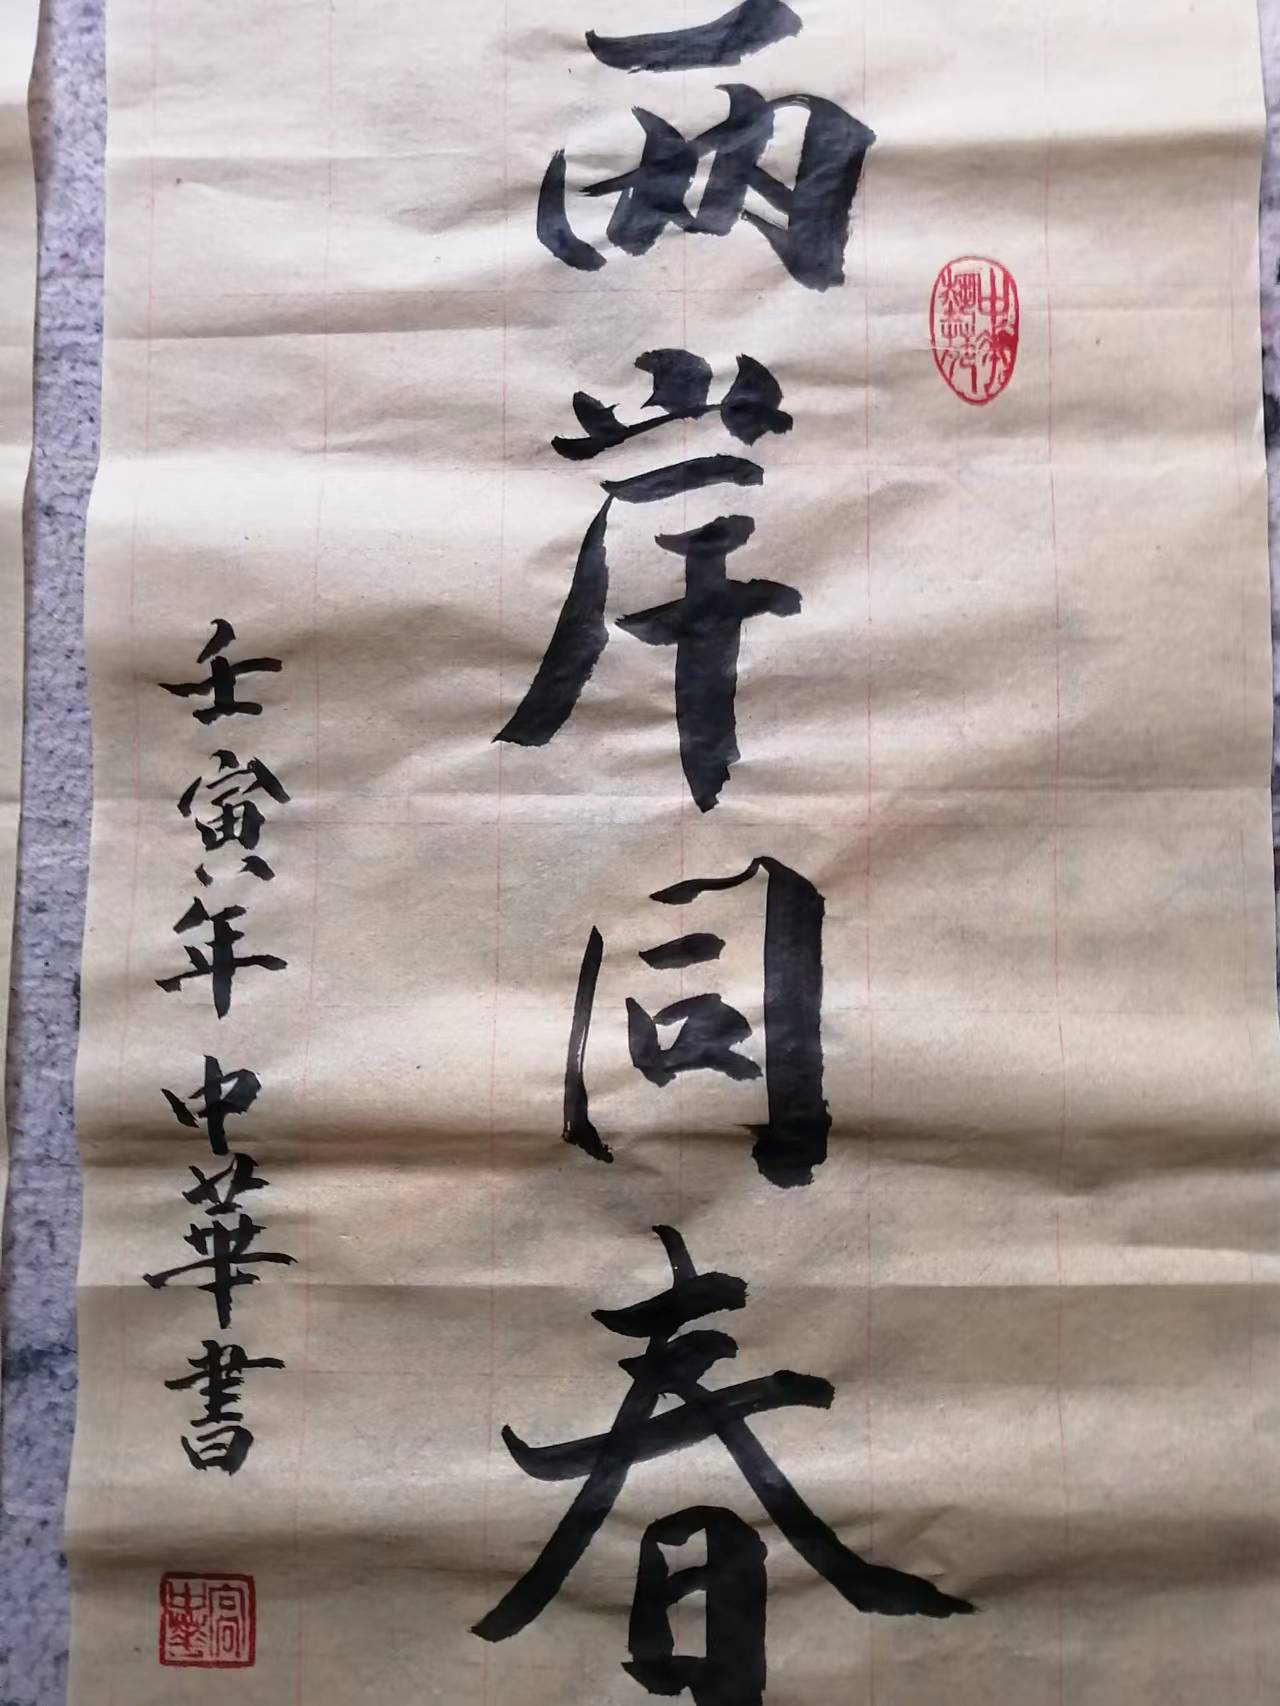 两岸同春
壬寅年 中華書